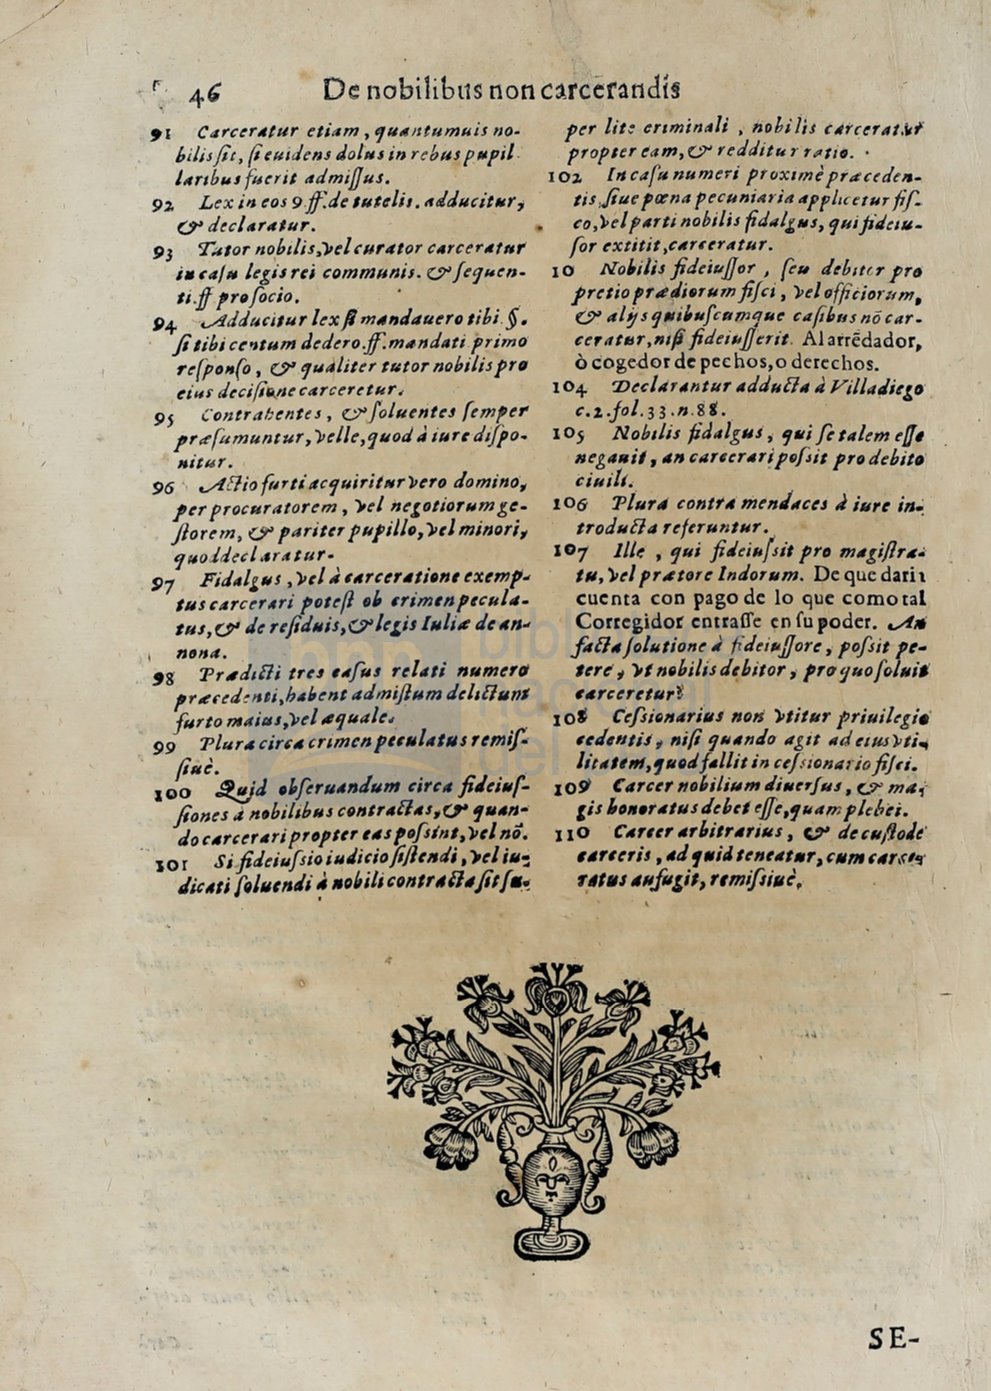 46 De nobilibus non carcerandis
91 Carceratur etiam, quantumuis no-
bilis sit, si euidens dolus in rebus pupil
laribus fuerit admissus.
92 Lex in eos 9. ff. de tutelis. adducitur,
& declaratur.
93 Tutor nobilis, vel curator carceratur
in casu legis rei communis. & sequen-
ti. ff pro socio.
94 Adducitur lex si mandauero tibi. §.
si tibi centum dedero. ff. mandati primo
responso, & qualiter tutor nobilis pro
eius decisione carceretur.
95 Contrahentes, & soluentes semper
præsumuntur, velle, quod à iure dispo-
nitur.
96 Actio furti acquiritur vero domino,
per procuratorem, vel negotiorum ge-
storem, & pariter pupillo, vel minori,
quod declaratur.
97 Fidalgus, vel à carceratione exemp-
tus carcerari potest ob crimen pecula-
tus, & de residuis, & legis Iuliæ de an-
nona.
98 Prædicti tres casus relati numero
præcedenti, habent admistum delictum
furto maius, vel æquale.
99 Plura circa crimen peculatus remis-
siuè.
100 Quid obseruandum circa fideius-
siones à nobilibus contractas, & quan-
do carcerari propter eas possint, vel nõ.
101 Si fideiussio iudicio sistendi, vel iu-
dicati soluendi à nobili contracta sit su-
per lite criminali, nobilis carceratur
propter eam, & redditur ratio.
102 In casu numeri proximè præceden-
tis, siue pœna pecuniaria applicetur fis-
co, vel parti nobilis fidalgus, qui fideiu-
sor extitit, carceratur.
10 Nobilis fideiussor, seu debitor pro
pretio prædiorum fisci, vel officiorum,
& alijs quibuscumque casibus nõ car-
ceratur, nisi fideiusserit. Al arrẽdador,
ò cogedor de pechos, o derechos.
104 Declarantur adducta à Villadiego
c. 2. fol. 33. n. 88.
105 Nobilis fidalgus, qui se talem esse
negauit, an carcerari possit pro debito
ciuili.
106 Plura contra mendaces à iure in-
troducta referuntur.
107 Ille, qui fideiussit pro magistra-
tu, vel prætore Indorum. De que daria
cuenta con pago de lo que como tal
Corregidor entrasse en su poder. An
facta solutione à fideiussore, possit pe-
tere, vt nobilis debitor, pro quo soluit
carceretur?
108 Cessionarius non vtitur priuilegio
cedentis, nisi quando agit ad eius vti-
litatem, quod fallit in cessionario fisci.
109 Carcer nobilium diuersus, & ma-
gis honoratus debet esse, quam plebei.
110 Carcer arbitrarius, & de custode
carceris, ad quid teneatur, cum carce-
ratus aufugit, remissiuè.
SE-